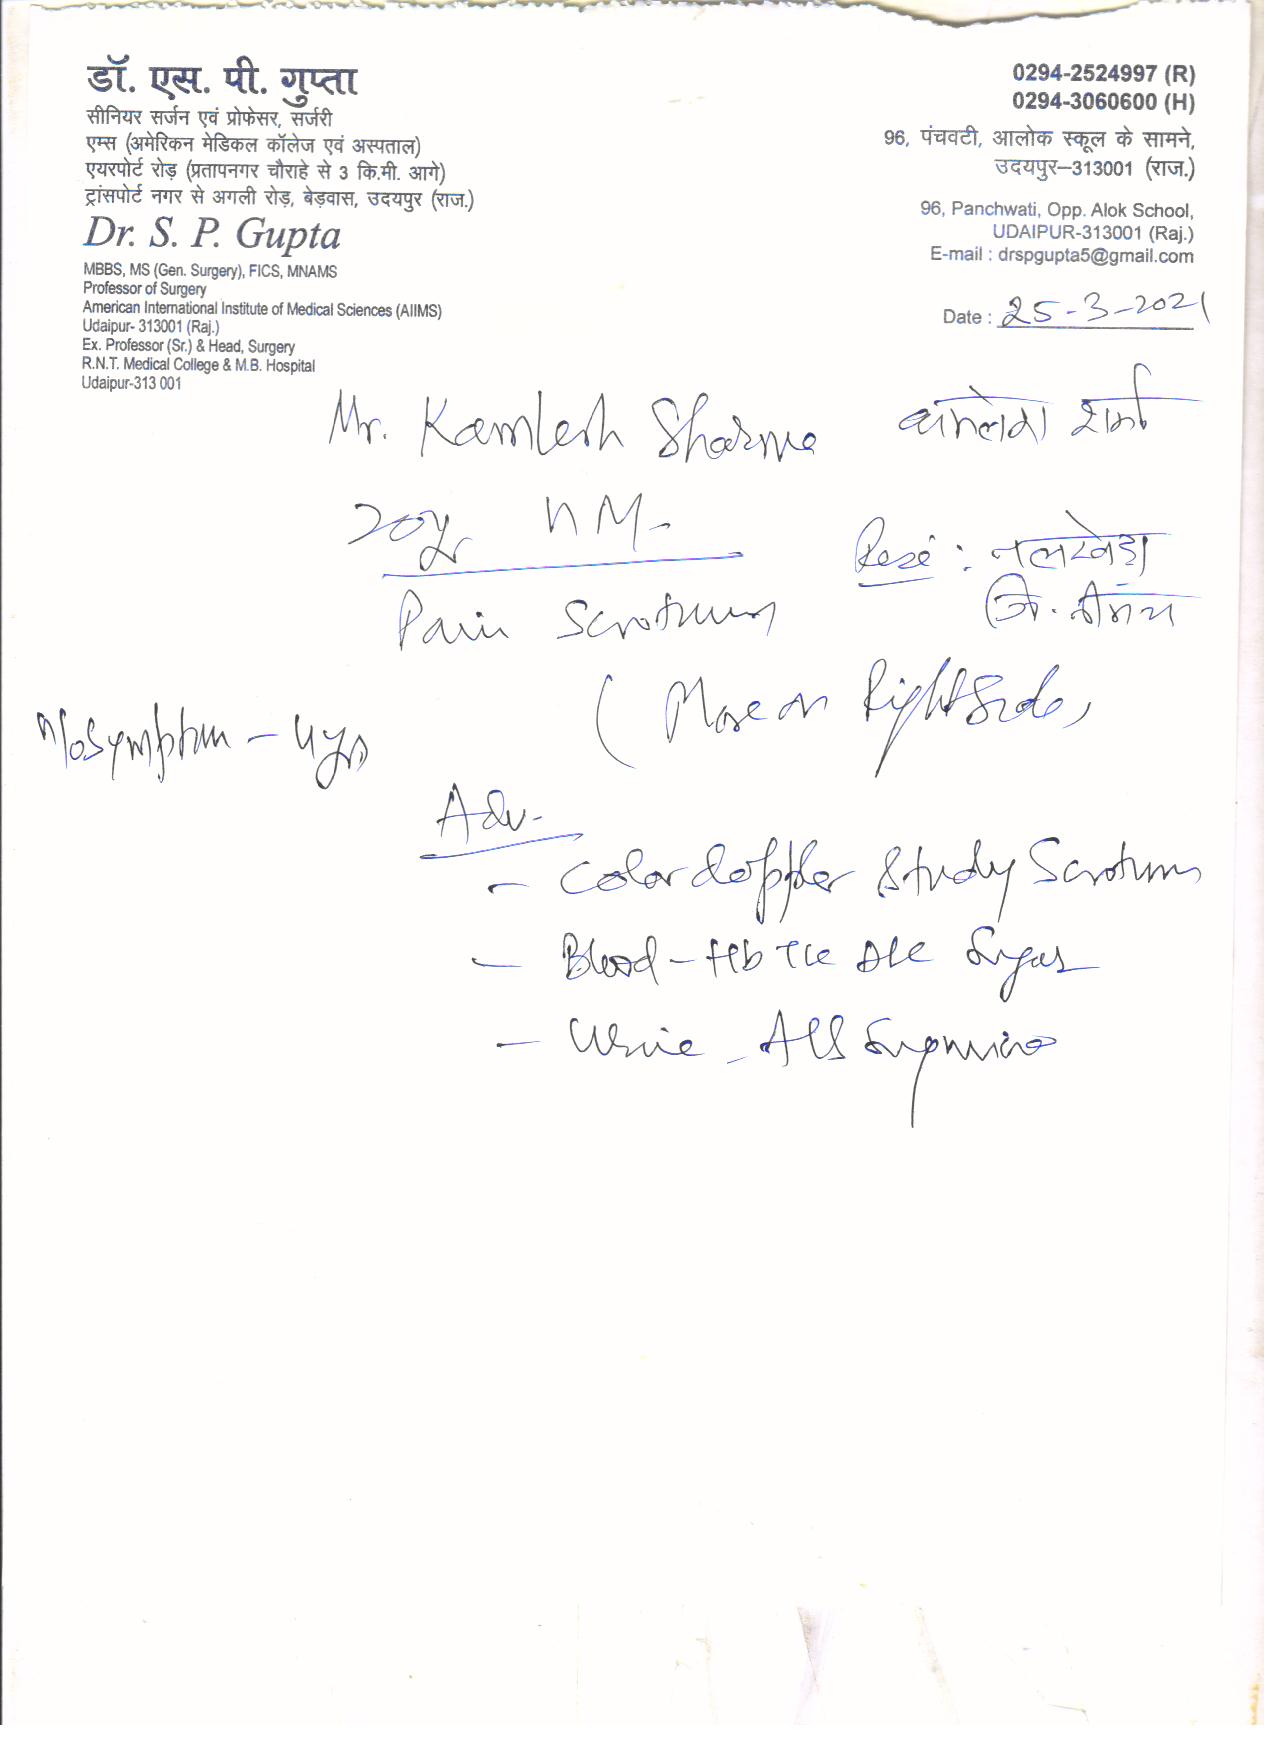 डॉ. एस. पी. गुप्ता
सीनियर सर्जन एवं प्रोफेसर, सर्जरी
एम्स (अमेरिकन मेडिकल कॉलेज एवं अस्पताल)
एयरपोर्ट रोड़ (प्रतापनगर चौराहे से 3 कि.मी. आगे)
ट्रांसपोर्ट नगर से अगली रोड़, बेड़वास, उदयपुर (राज.)
Dr. S. P. Gupta
MBBS, MS (Gen. Surgery), FICS, MNAMS
Professor of Surgery
American International Institute of Medical Sciences (AIIMS)
Udaipur- 313001 (Raj.)
Ex. Professor (Sr.) & Head, Surgery
R.N.T. Medical College & M.B. Hospital
Udaipur-313 001
0294-2524997 (R)
0294-3060600 (H)
96, पंचवटी, आलोक स्कूल के सामने,
उदयपुर–313001 (राज.)
96, Panchwati, Opp. Alok School,
UDAIPUR-313001 (Raj.)
E-mail : drspgupta5@gmail.com
Date : 25-3-2021
Mr. Kamlesh Sharma कमलेश शर्मा
20yr M-
: नलखेड़ा
जि.
Pain Scrotum
(More on Right Side)
Symptom - 4yrs
Adv-
- Color doppler Study Scrotum
- Blood - Hb TLC DLC Sugar
- Urine - Alb Sugar micro